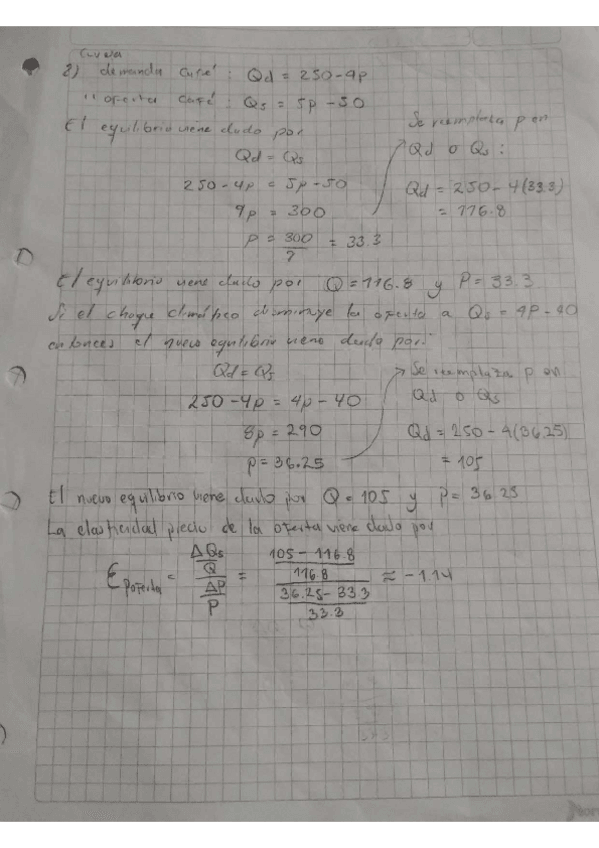 Curva
2) demanda Café: Qd = 250-4p
" oferta Café: Qs = 5p-50
El equilibrio viene dado por
Qd = Qs
250-4p = 5p-50
9p = 300
p = 300/9 = 33.3
Se reemplaza p en
Qd o Qs:
Qd = 250-4(33.3)
= 116.8
El equilibrio viene dado por Q=116.8 y P=33.3
Si el choque climático disminuye la oferta a Qs = 4P-40
entonces el nuevo equilibrio viene dado por:
Qd = Qs
250-4p = 4p-40
8p = 290
p = 36.25
Se reemplaza p en
Qd o Qs
Qd = 250-4(36.25)
= 105
El nuevo equilibrio viene dado por Q=105 y P=36.25
La elasticidad precio de la oferta viene dado por
E Poferta = (ΔQs/Q)/(ΔP/P) = ((105-116.8)/116.8)/((36.25-33.3)/33.3) ≈ -1.14